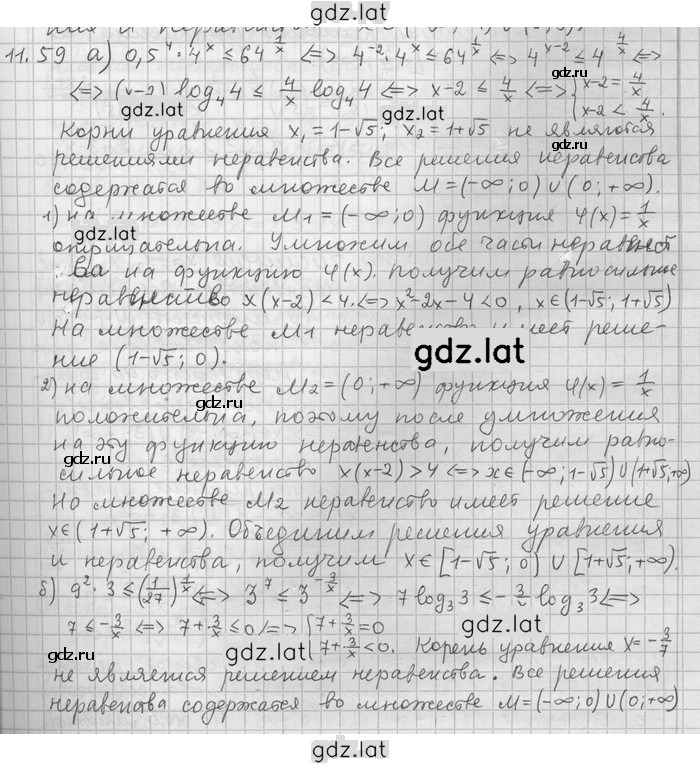 gdz.lat
ния и неравенства x ∈
11.59 а) 0,5⁴·4ˣ ≤ 64^(1/x) <=> 4⁻²·4ˣ ≤ 64^(1/x) <=> 4^(x-2) ≤ 4^(4/x) <=>
<=> (x-2) log₄4 ≤ 4/x log₄4 <=> x-2 ≤ 4/x <=> { x-2 = 4/x
gdz.lat
gdz.lat
x-2 < 4/x.
Корни уравнения x₁ = 1-√5; x₂ = 1+√5 не являются
решениями неравенства. Все решения неравенства
содержатся во множестве M = (-∞; 0) ∪ (0; +∞).
1) на множестве M₁ = (-∞; 0) функция φ(x) = 1/x
отрицательна. Умножим обе части неравенст
gdz.lat
ва на функцию φ(x). получим равносильное
неравенство x(x-2) < 4. <=> x²-2x-4 < 0, x ∈ (1-√5; 1+√5)
На множестве M₁ неравенство имеет реше-
gdz.lat
ние (1-√5; 0).
2) на множестве M₂ = (0; +∞) функция φ(x) = 1/x
gdz.ru
положительна, поэтому после умножения
на эту функцию неравенства, получим равно-
gdz.lat
сильное неравенство x(x-2) > 4 <=> x ∈ (-∞; 1-√5) ∪ (1+√5, +∞)
На множестве M₂ неравенство имеет решение
x ∈ (1+√5; +∞). Объединим решения уравнения
gdz.lat
и неравенства, получим x ∈ [1-√5; 0) ∪ [1+√5, +∞).
б) 9²·3 ≤ (1/27)^(1/x) <=> 3⁷ ≤ 3^(-3/x) <=> 7 log₃3 ≤ -3/x log₃3 <=>
gdz.lat
gdz.lat
7 ≤ -3/x <=> 7+3/x ≤ 0 <=> { 7+3/x = 0
gdz.lat
7+3/x < 0. Корень уравнения x = -3/7
не является решением неравенства. Все решения
gdz.lat
неравенства содержатся во множестве M = (-∞; 0) ∪ (0; +∞)
gdz.lat